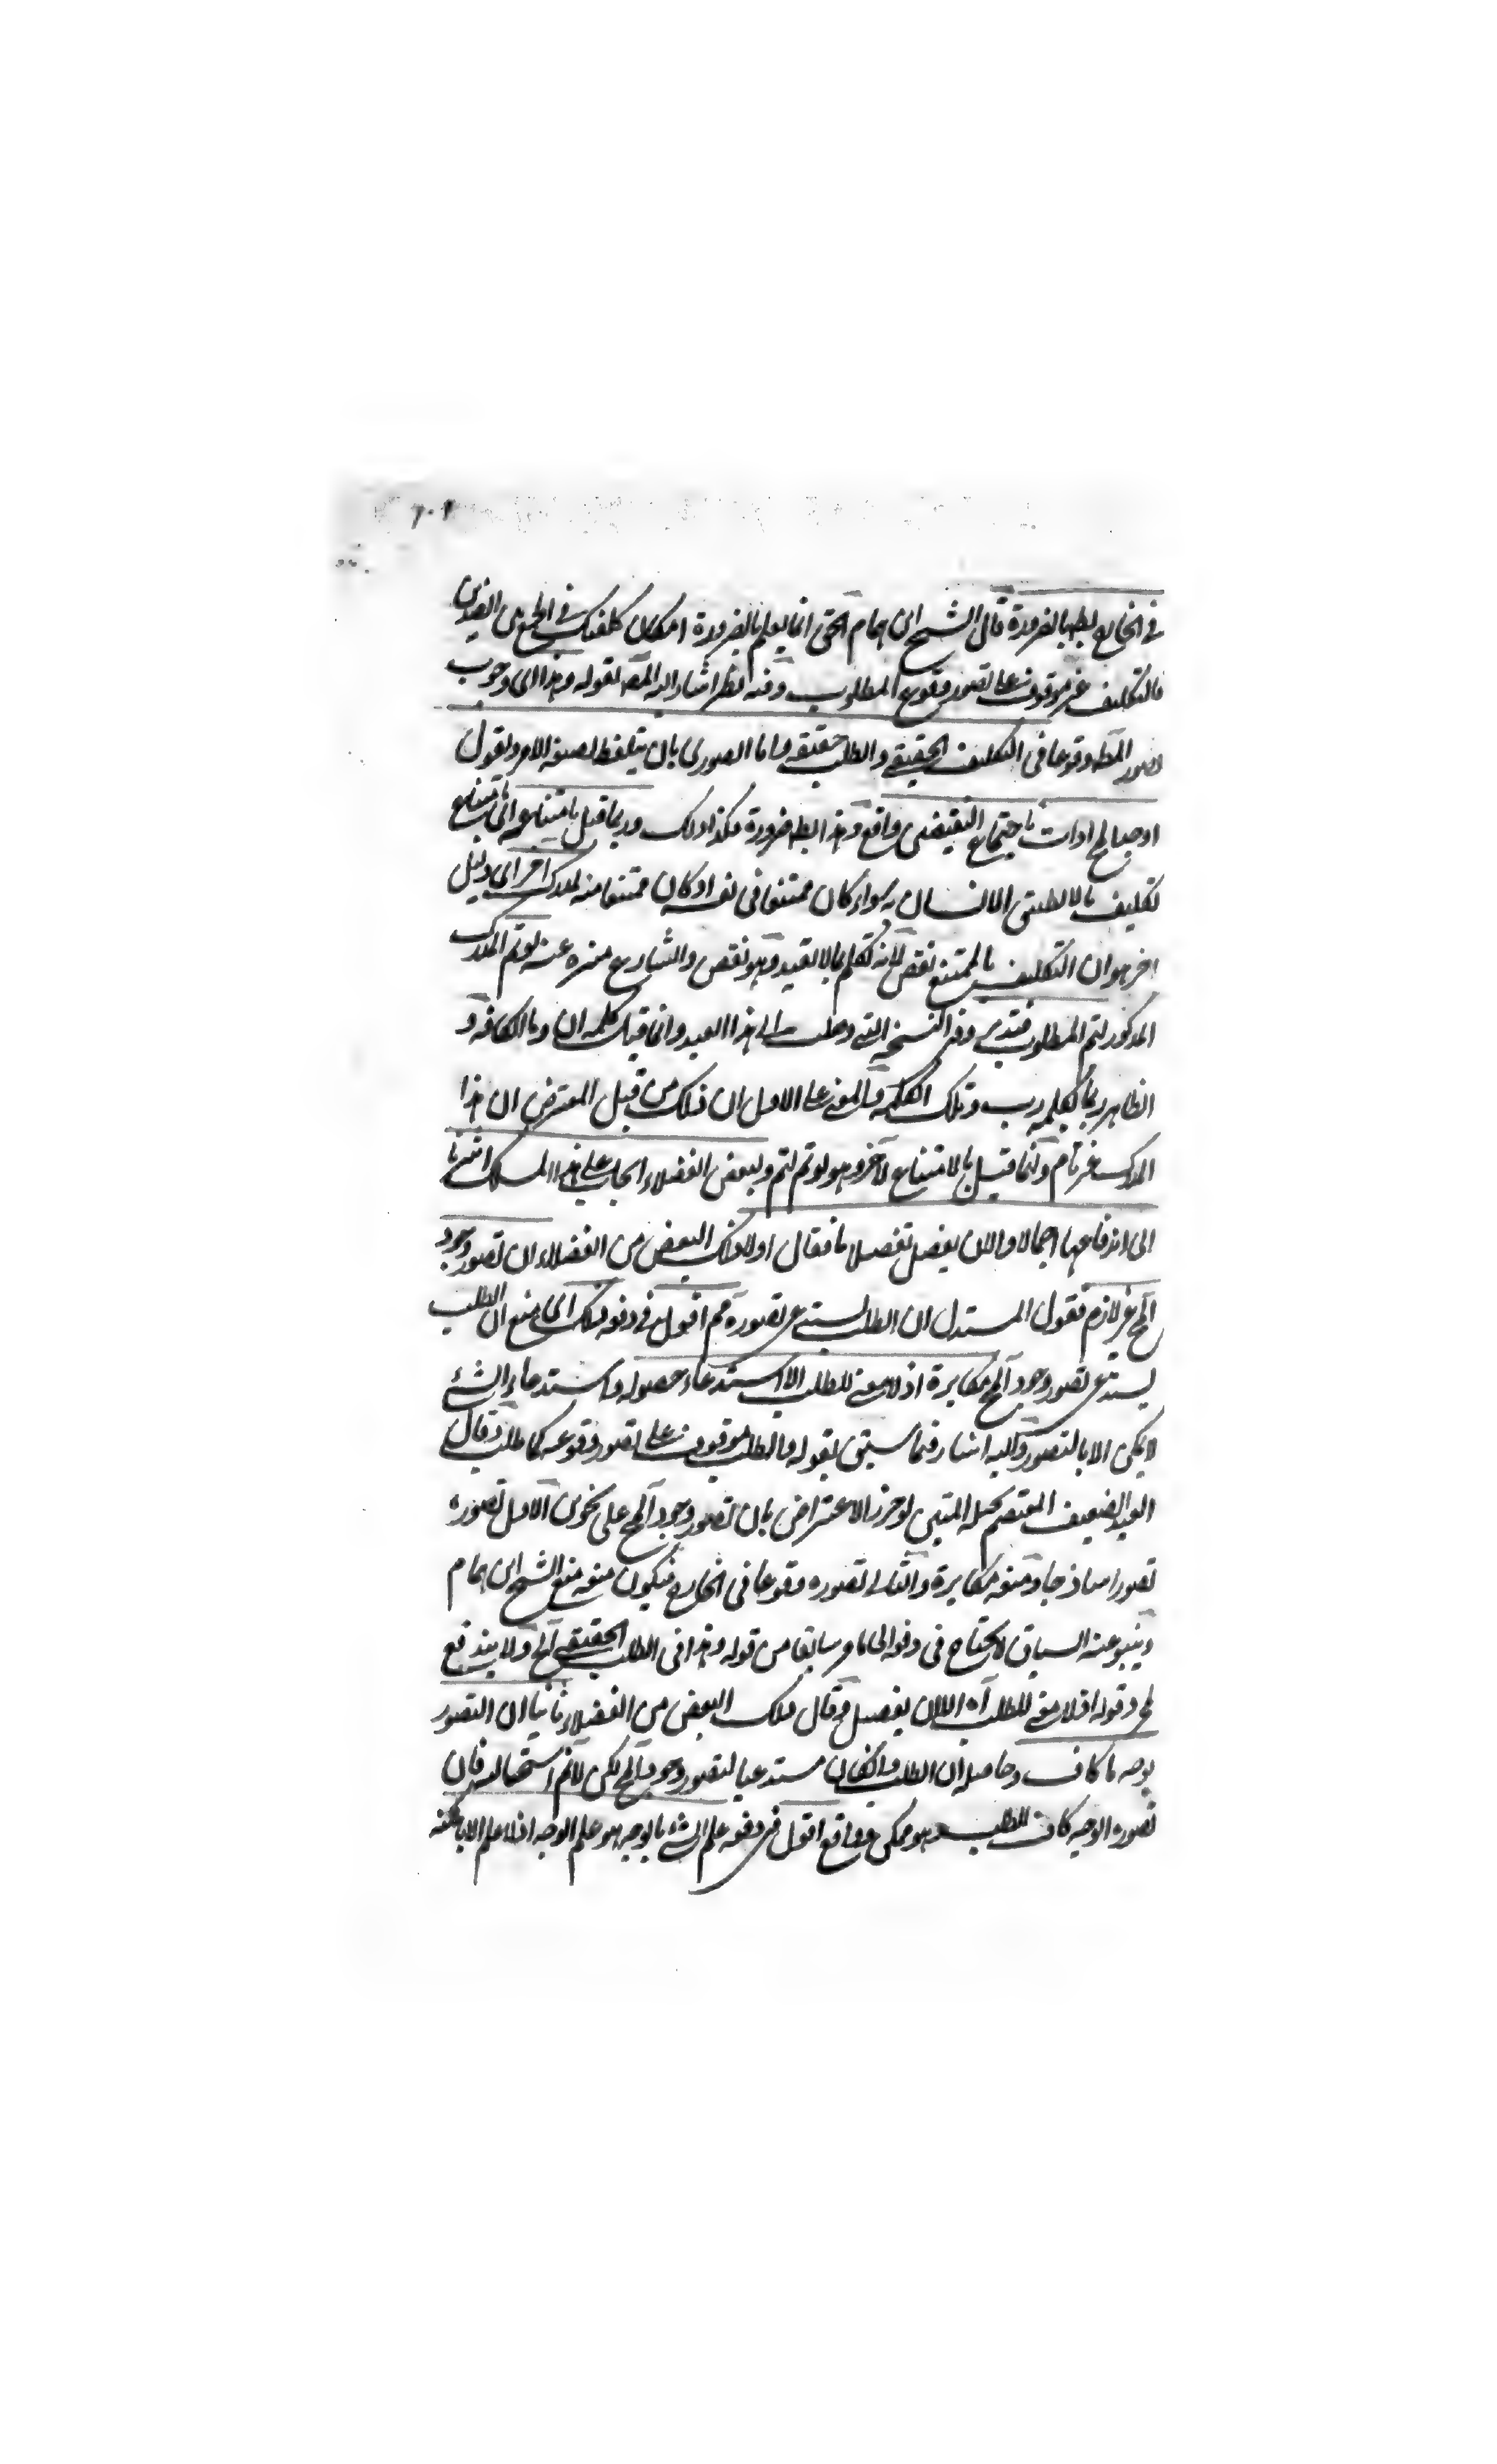 في الخارج بطها بالضرورة قال الشيخ ابن همام الحق انما يعلم بالضرورة امكان كلفتك في الجمع بين الضدين
فالتكليف غير موقوف على تصور وقوع المطلوب وفيه نظر اشار اليه المصه بقوله وهذا اى وجوب
تصور المطه وقوعا فى التكليف الحقيقے والطلب حقيقه واما الصورى بان يتلفظ بصيغه الامر ويقول
اوجبا لح ادات باجتماع النقيضين واقع وهذا بطه ضرورة هكذا ذلك وربما قيل بامتناعه اى بامتناع
تكليف مالا يطيق الانسان به سواء كان ممتنعا فى نفسه او كان ممتنعا منه لمدرك اخر اى دليل
اخر هو ان التكليف بالممتنع نقص لانه تكلم بما لا يفيد وهو نقص والشارع منزه عنه لو تم المدرك
المذكور لتم المطلوب فتدبر وفى النسخه التى وصلت الى هذا العبد وانما قيل كلمه ان وما الكافه و
الظاهر ربما بكلمه رب وتلك الكلمه والمعنى على الاول ان ذلك من قبل المعترض ان هذا
المدرك غير تام وانما قيل بالامتناع لآخر وهو لو تم لتم ولبعض الفضلاء ابحاث على هذا المسلك اشرنا
الى اندفاعها اجمالا والان يفصل تفصيلا ما فقال اولا ذلك البعض من الفضلاء ان تصور وجود
المح غير لازم فقول المستدل ان الطلب يستدعى تصوره مم اقول فى دفعه ذلك اى منع ان الطلب
يستدعى تصور وجود المح مكابرة اذ لا معنے للطلب الا استدعاء حصوله واستدعاء الشئ
لا يمكن الا بالتصور واليه اشار فيما سبق بقوله والطلب موقوف على تصور وقوعه كما طلب وقال
العبد الضعيف المعتصم بحبله المتين لو حرر الاعتراض بان تصور وجود المح على نحوين الاول تصوره
تصورا ساذجا ومنعه مكابرة والثانى تصوره وقوعا فى الخارج فيكون منعه منع الشيخ ابن همام
وينبو عنه السياق لا يحتاج فى دفعه الى ما مر سابقا من قوله وهذا فى الطلب الحقيقے الخ ولا يندفع
بمجرد قوله اذ لا معنے للطلب آه الا ان يفصل وقال ذلك البعض من الفضلاء ثانيا ان التصور
بوجه ما كاف وحاصله ان الطلب وان كان مستدعيا لتصور وجود المح لكن لا نم استحالته فان
تصوره الوجه كاف للطلب وهو ممكن وواقع اقول فى دفعه علم الشئ بالوجه هو علم الوجه اذ لا علم الا بالكنه